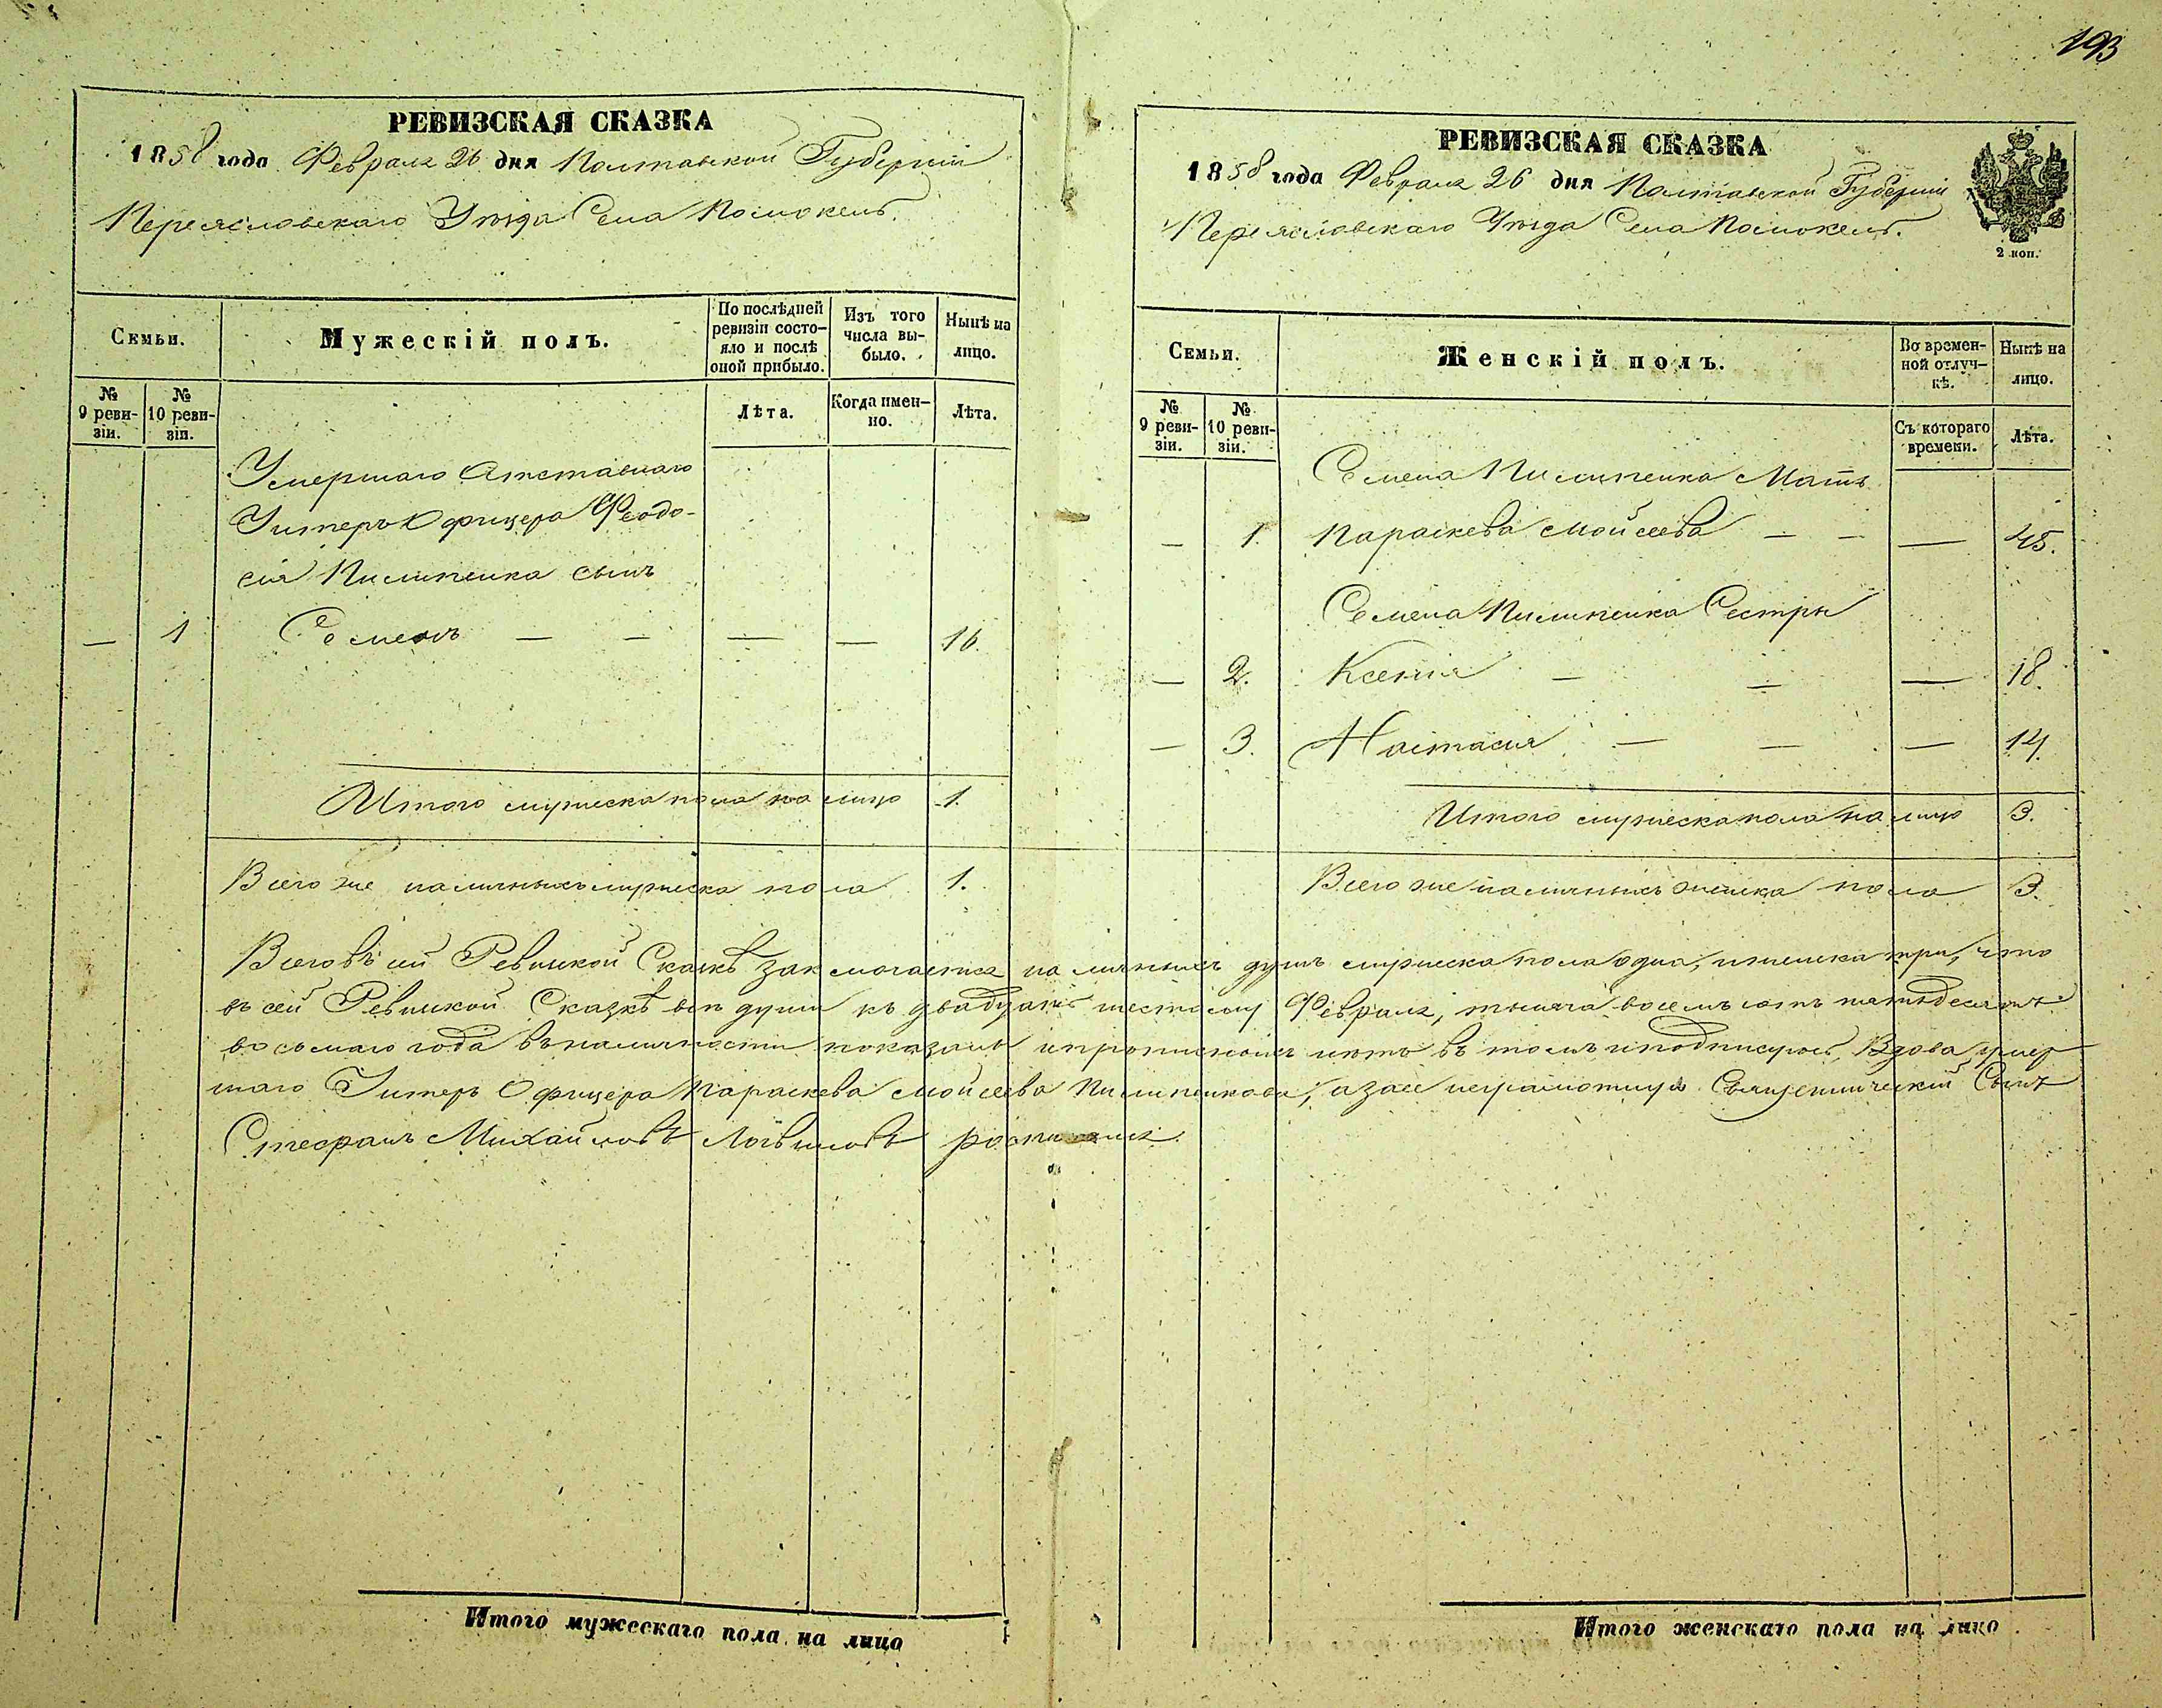 193
РЕВИЗСКАЯ СКАЗКА
1858 года Февраля 26 дня Полтавской Губерніи
Переясловскаго Уѣзда Села Помоклей.
Семьи.
Мужескій полъ.
По послѣдней ревизіи состояло и послѣ оной прибыло.
Изъ того числа выбыло.
Нынѣ на лицо.
№ 9 ревизіи.
№ 10 ревизіи.
Лѣта.
Когда именно.
Лѣта.
Умершаго Отставнаго
Унтеръ Офицера Феодо-
сія Пилипенка сынъ
— 1 Семенъ — — — — 16.
Итого мужеска пола на лицо 1.
Всего же наличныхъ мужеска пола 1.
РЕВИЗСКАЯ СКАЗКА
1858 года Февраля 26 дня Полтавской Губерніи
Переясловскаго Уѣзда Села Помоклей.
2 коп.
Семьи.
Женскій полъ.
Во временной отлучкѣ.
Нынѣ на лицо.
№ 9 ревизіи.
№ 10 ревизіи.
Съ котораго времени.
Лѣта.
Семена Пилипенка Мать
— 1. Параскева Мойсеева — — — 45.
Семена Пилипенка Сестры
— 2. Ксенія — — — 18.
— 3. Настасія — — — 14.
Итого мужеска пола на лицо 3.
Всего же наличныхъ женска пола 3.
Всего въ сей Ревиской Сказкѣ заключается на личныхъ душъ мужеска пола одна, и женска три, что
въ сей Ревиской Сказкѣ всѣ души къ двадцать шестому Февраля, тысяча восемъ сотъ пятьдесятъ
восьмаго года въ наличности показаны и прописныхъ нѣтъ въ томъ и подписуюсь, Вдова умер
шаго Унтеръ Офицера Параскева Мойсеева Пилипенкова, а за нее неграмотную Священническій Сынъ
Стефанъ Михайловъ росписался.
Итого мужескаго пола на лицо
Итого женскаго пола на лицо